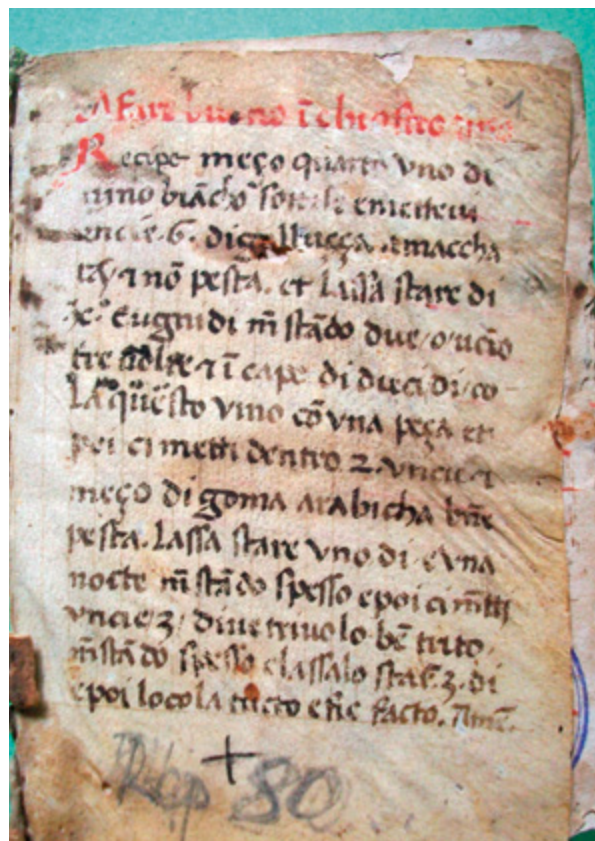 1
A fare buono ĩchiostro fino
Recipe meço quarto vno di
uino biãcho sottile e metteui
encie .6. di galluçça . e maccha
ta, ⁊ nõ pesta. et lassa stare di
.x. E ugni di m̃stãdo due, o ucio
tre uolte ⁊ ĩ cape di dieci di, co
la q̃sto vino cõ vna peça et
poi ci metti dentro 2. vncie ⁊
meço di goma arabicha bñe
pesta. Lassa stare vno di e vna
nocte m̃stãdo spesso e poi ci m̃tti
vncie .3. di uetriuolo bẽ trito,
m̃stãdo spesso e lassalo star̃ .3. di
e poi lo cola tucto e ñe facto. Amẽ.
+
80